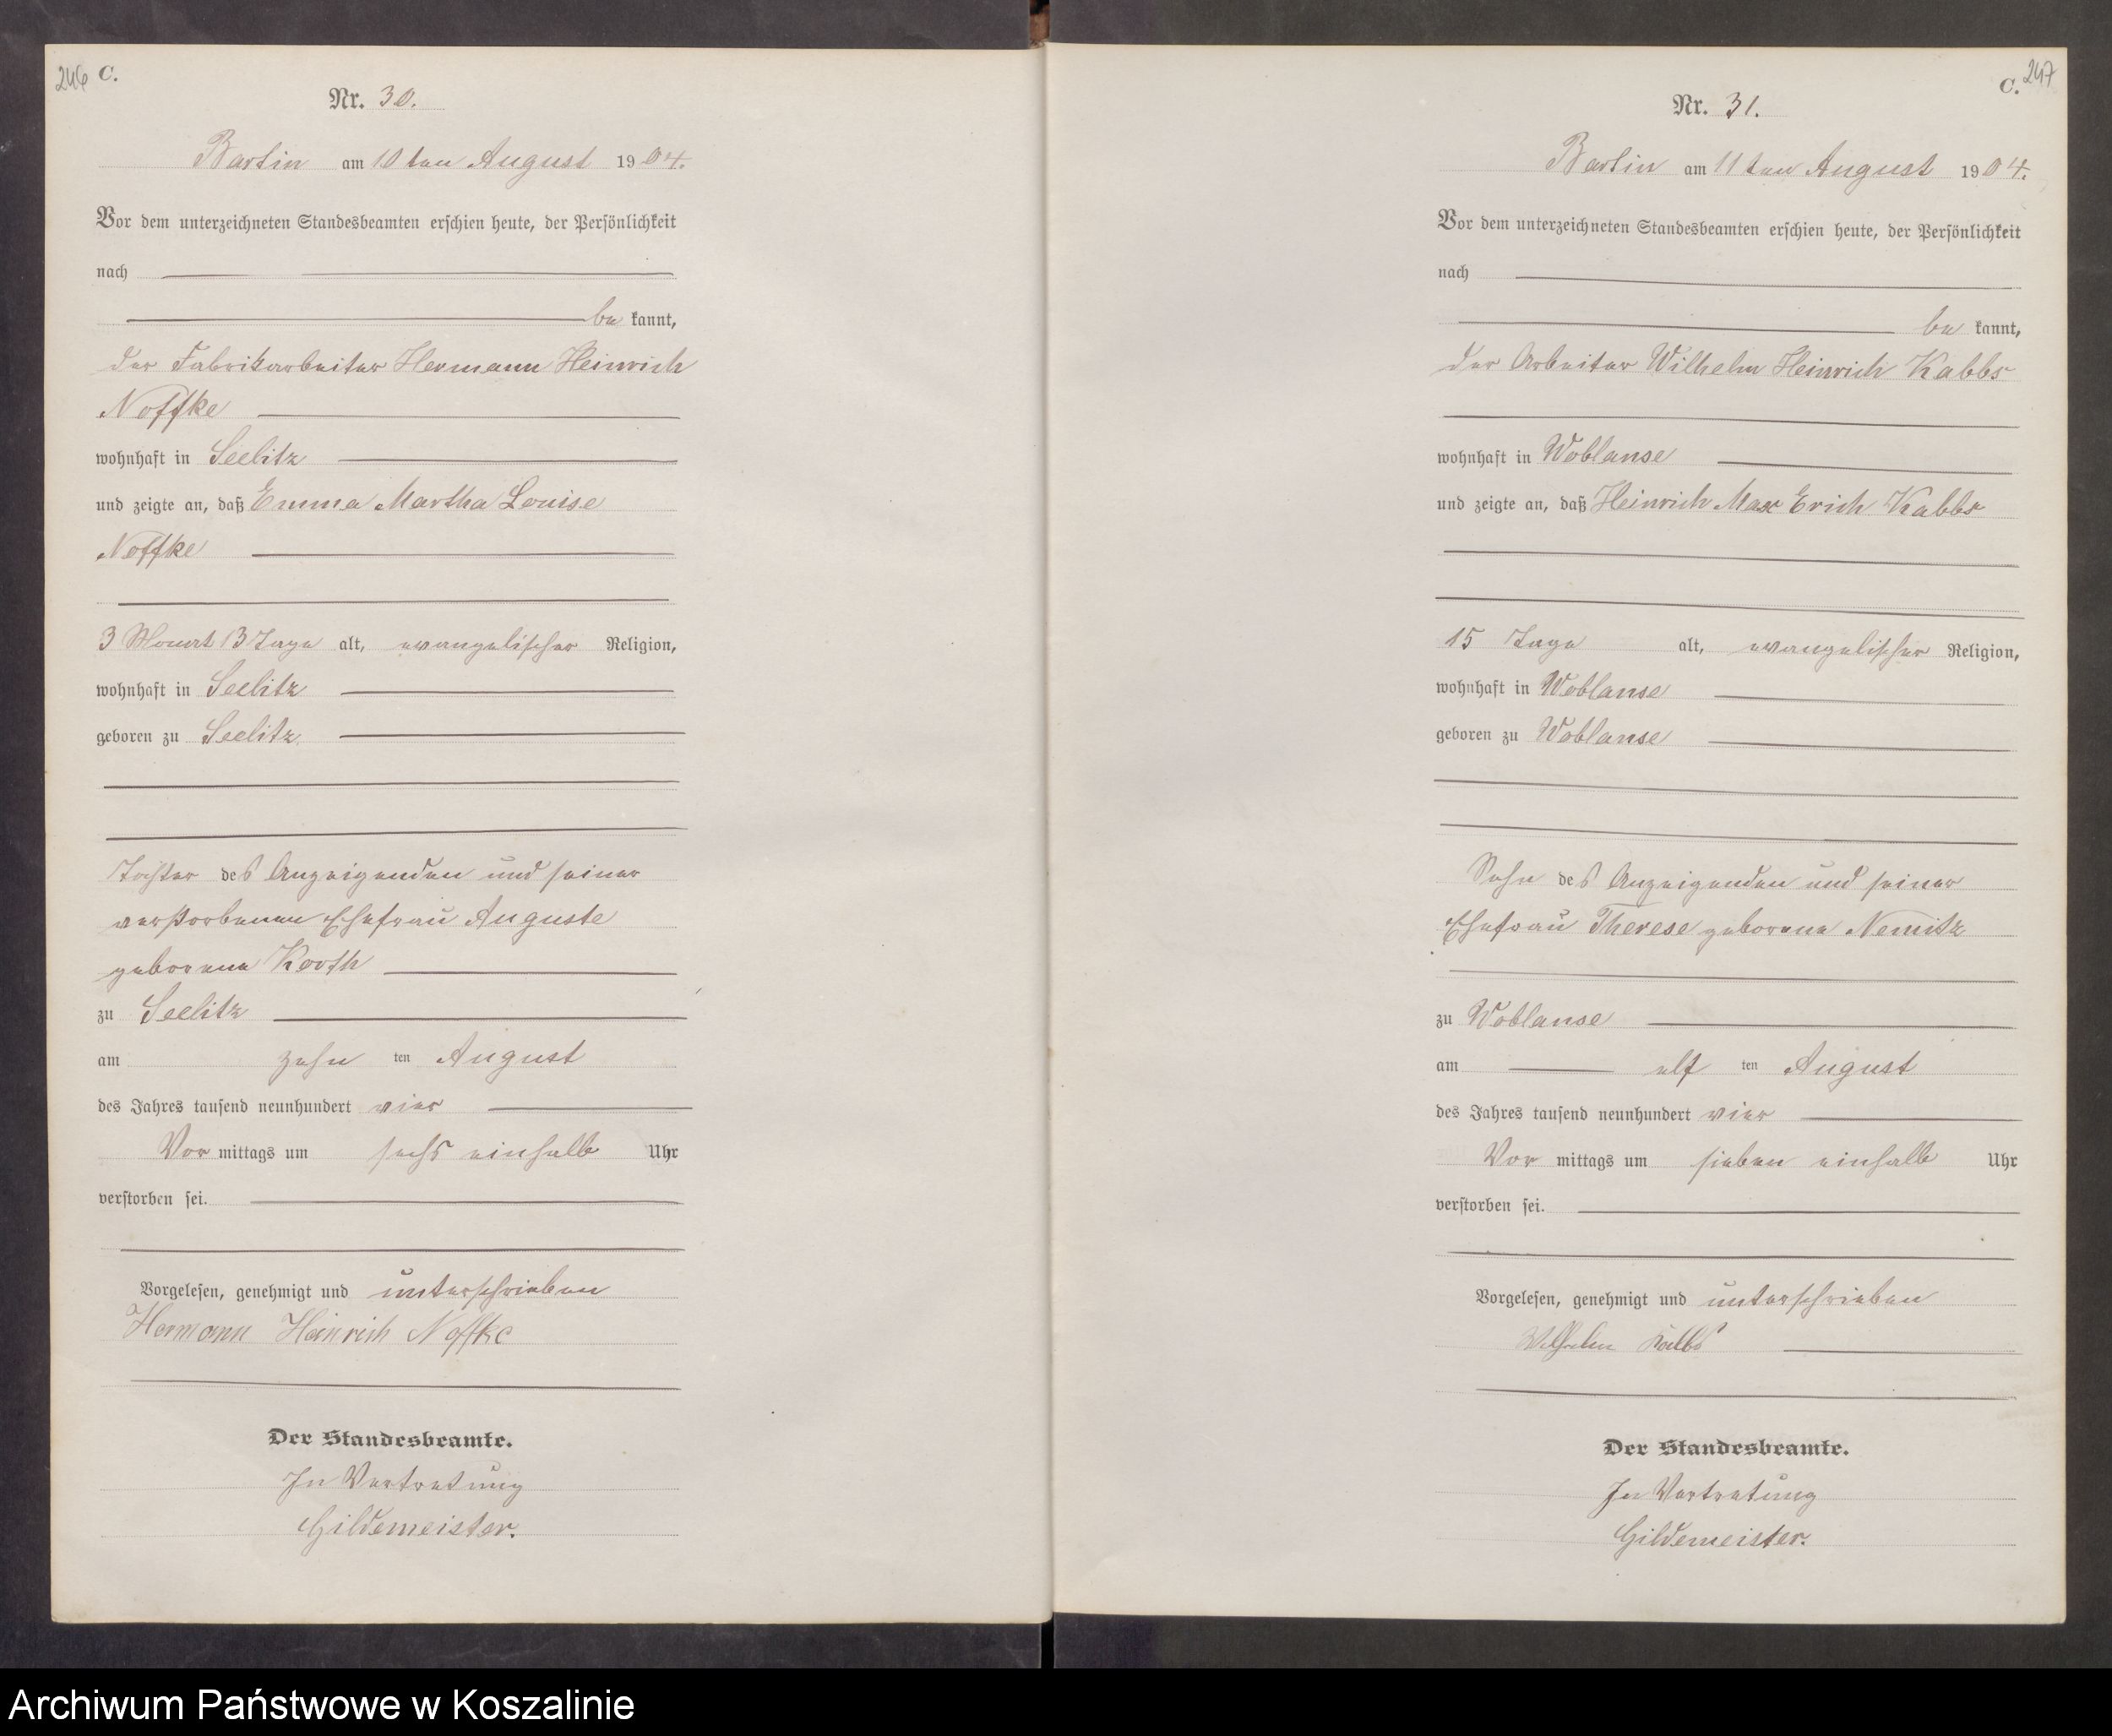 246 C.
Nr. 30.
Bartin am 10ten August 1904.
Vor dem unterzeichneten Standesbeamten erschien heute, der Persönlichkeit
nach
be kannt,
der Fabrikarbeiter Hermann Heinrich
Noffke
wohnhaft in Seelitz
und zeigte an, daß Emma Martha Louise
Noffke
3 Monat 13 Tage alt, evangelischer Religion,
wohnhaft in Seelitz
geboren zu Seelitz
Tochter des Anzeigenden und seiner
verstorbenen Ehefrau Auguste
geborene Korth
zu Seelitz
am zehn ten August
des Jahres tausend neunhundert vier
Vor mittags um sechs einhalb Uhr
verstorben sei.
Vorgelesen, genehmigt und unterschrieben
Hermann Heinrich Noffke
Der Standesbeamte.
In Vertretung
Gildemeister.
C. 247
Nr. 31.
Bartin am 11ten August 1904.
Vor dem unterzeichneten Standesbeamten erschien heute, der Persönlichkeit
nach
be kannt,
der Arbeiter Wilhelm Heinrich Kabbs
wohnhaft in Woblanse
und zeigte an, daß Heinrich Max Erich Kabbs
15 Tage alt, evangelischer Religion,
wohnhaft in Woblanse
geboren zu Woblanse
Sohn des Anzeigenden und seiner
Ehefrau Therese geborene Nemitz
zu Woblanse
am elf ten August
des Jahres tausend neunhundert vier
Vor mittags um sieben einhalb Uhr
verstorben sei.
Vorgelesen, genehmigt und unterschrieben
Wilhelm Kabbs
Der Standesbeamte.
In Vertretung
Gildemeister.
Archiwum Państwowe w Koszalinie